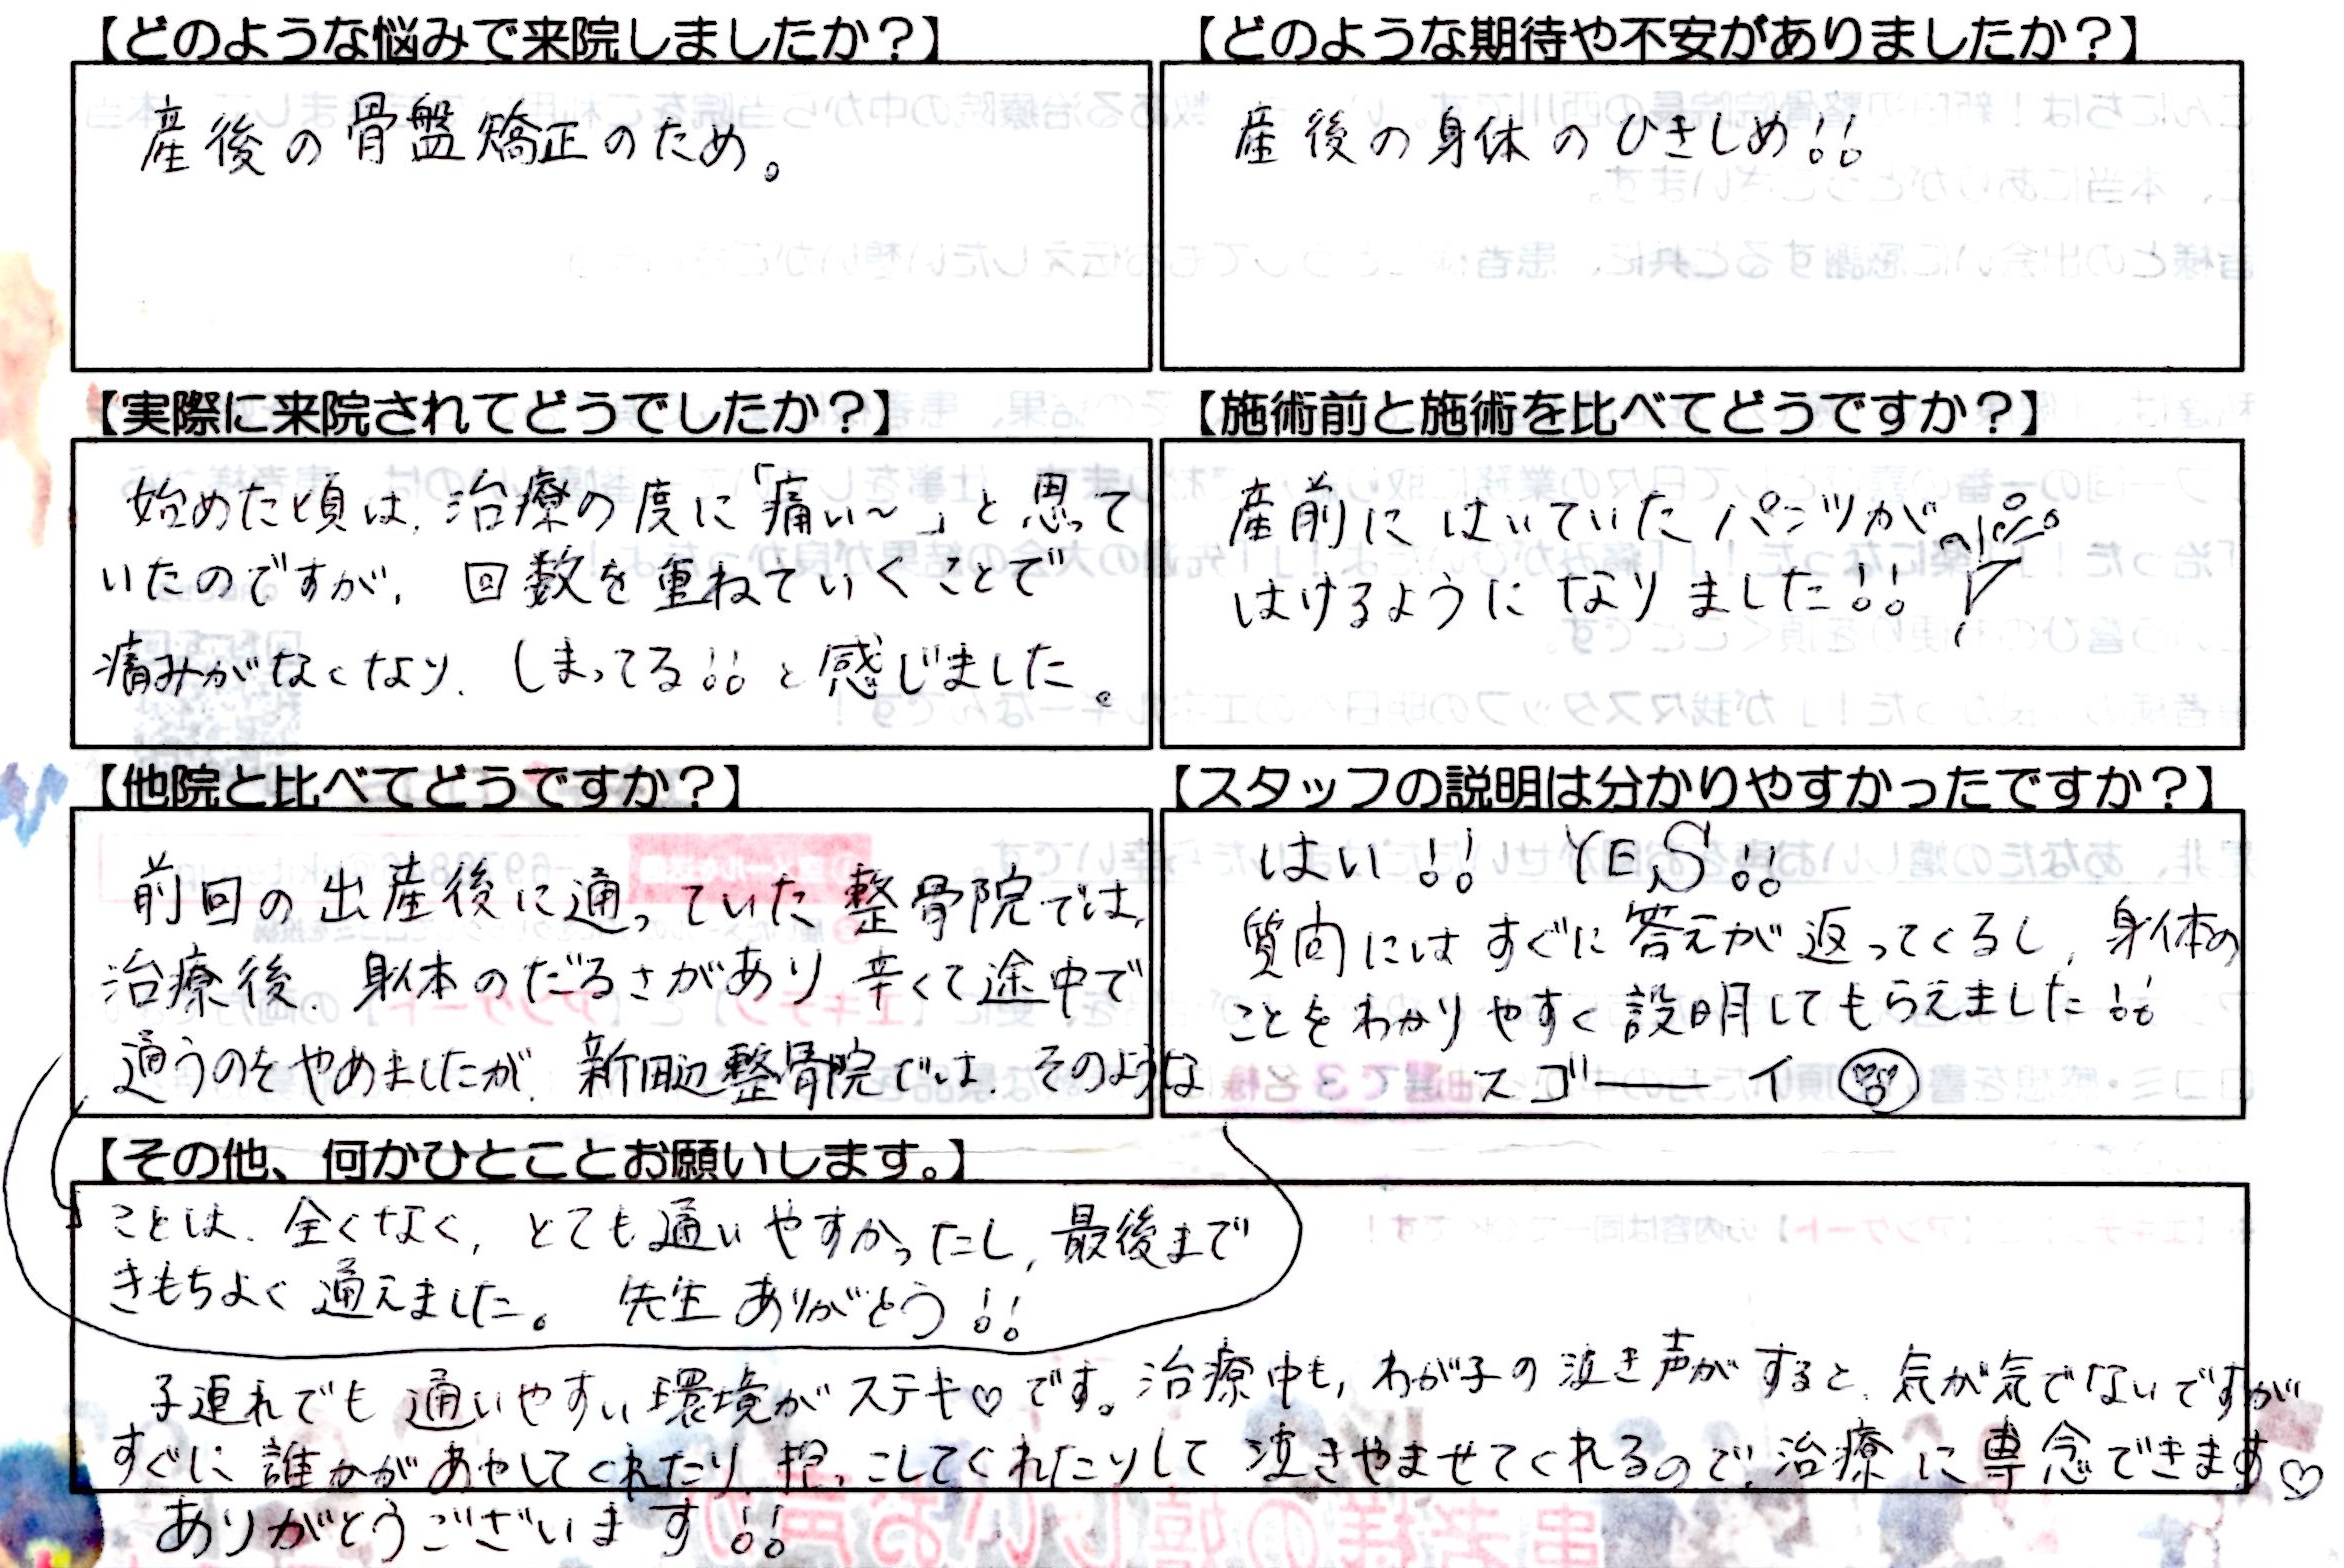 【どのような悩みで来院しましたか？】
産後の骨盤矯正のため。
【どのような期待や不安がありましたか？】
産後の身体のひきしめ!!
【実際に来院されてどうでしたか？】
始めた頃は、治療の度に「痛い～」と思って
いたのですが、回数を重ねていくことで
痛みがなくなり、しまってる!!と感じました。
【施術前と施術を比べてどうですか？】
産前にはいていたパンツが
はけるようになりました!!
【他院と比べてどうですか？】
前回の出産後に通っていた整骨院では、
治療後、身体のだるさがあり辛くて途中で
通うのをやめましたが、新田辺整骨院では、そのような
【スタッフの説明は分かりやすかったですか？】
はい!! YES!!
質問にはすぐに答えが返ってくるし、身体の
ことをわかりやすく説明してもらえました!!
スゴーイ
【その他、何かひとことお願いします。】
ことは、全くなく、とても通いやすかったし、最後まで
きもちよく通えました。 先生ありがとう!!
子連れでも通いやすい環境がステキ♡です。治療中も、わが子の泣き声がすると、気が気でないですが
すぐに誰かがあやしてくれたり、抱っこしてくれたりして泣きやませてくれるので、治療に専念できます♡
ありがとうございます!!